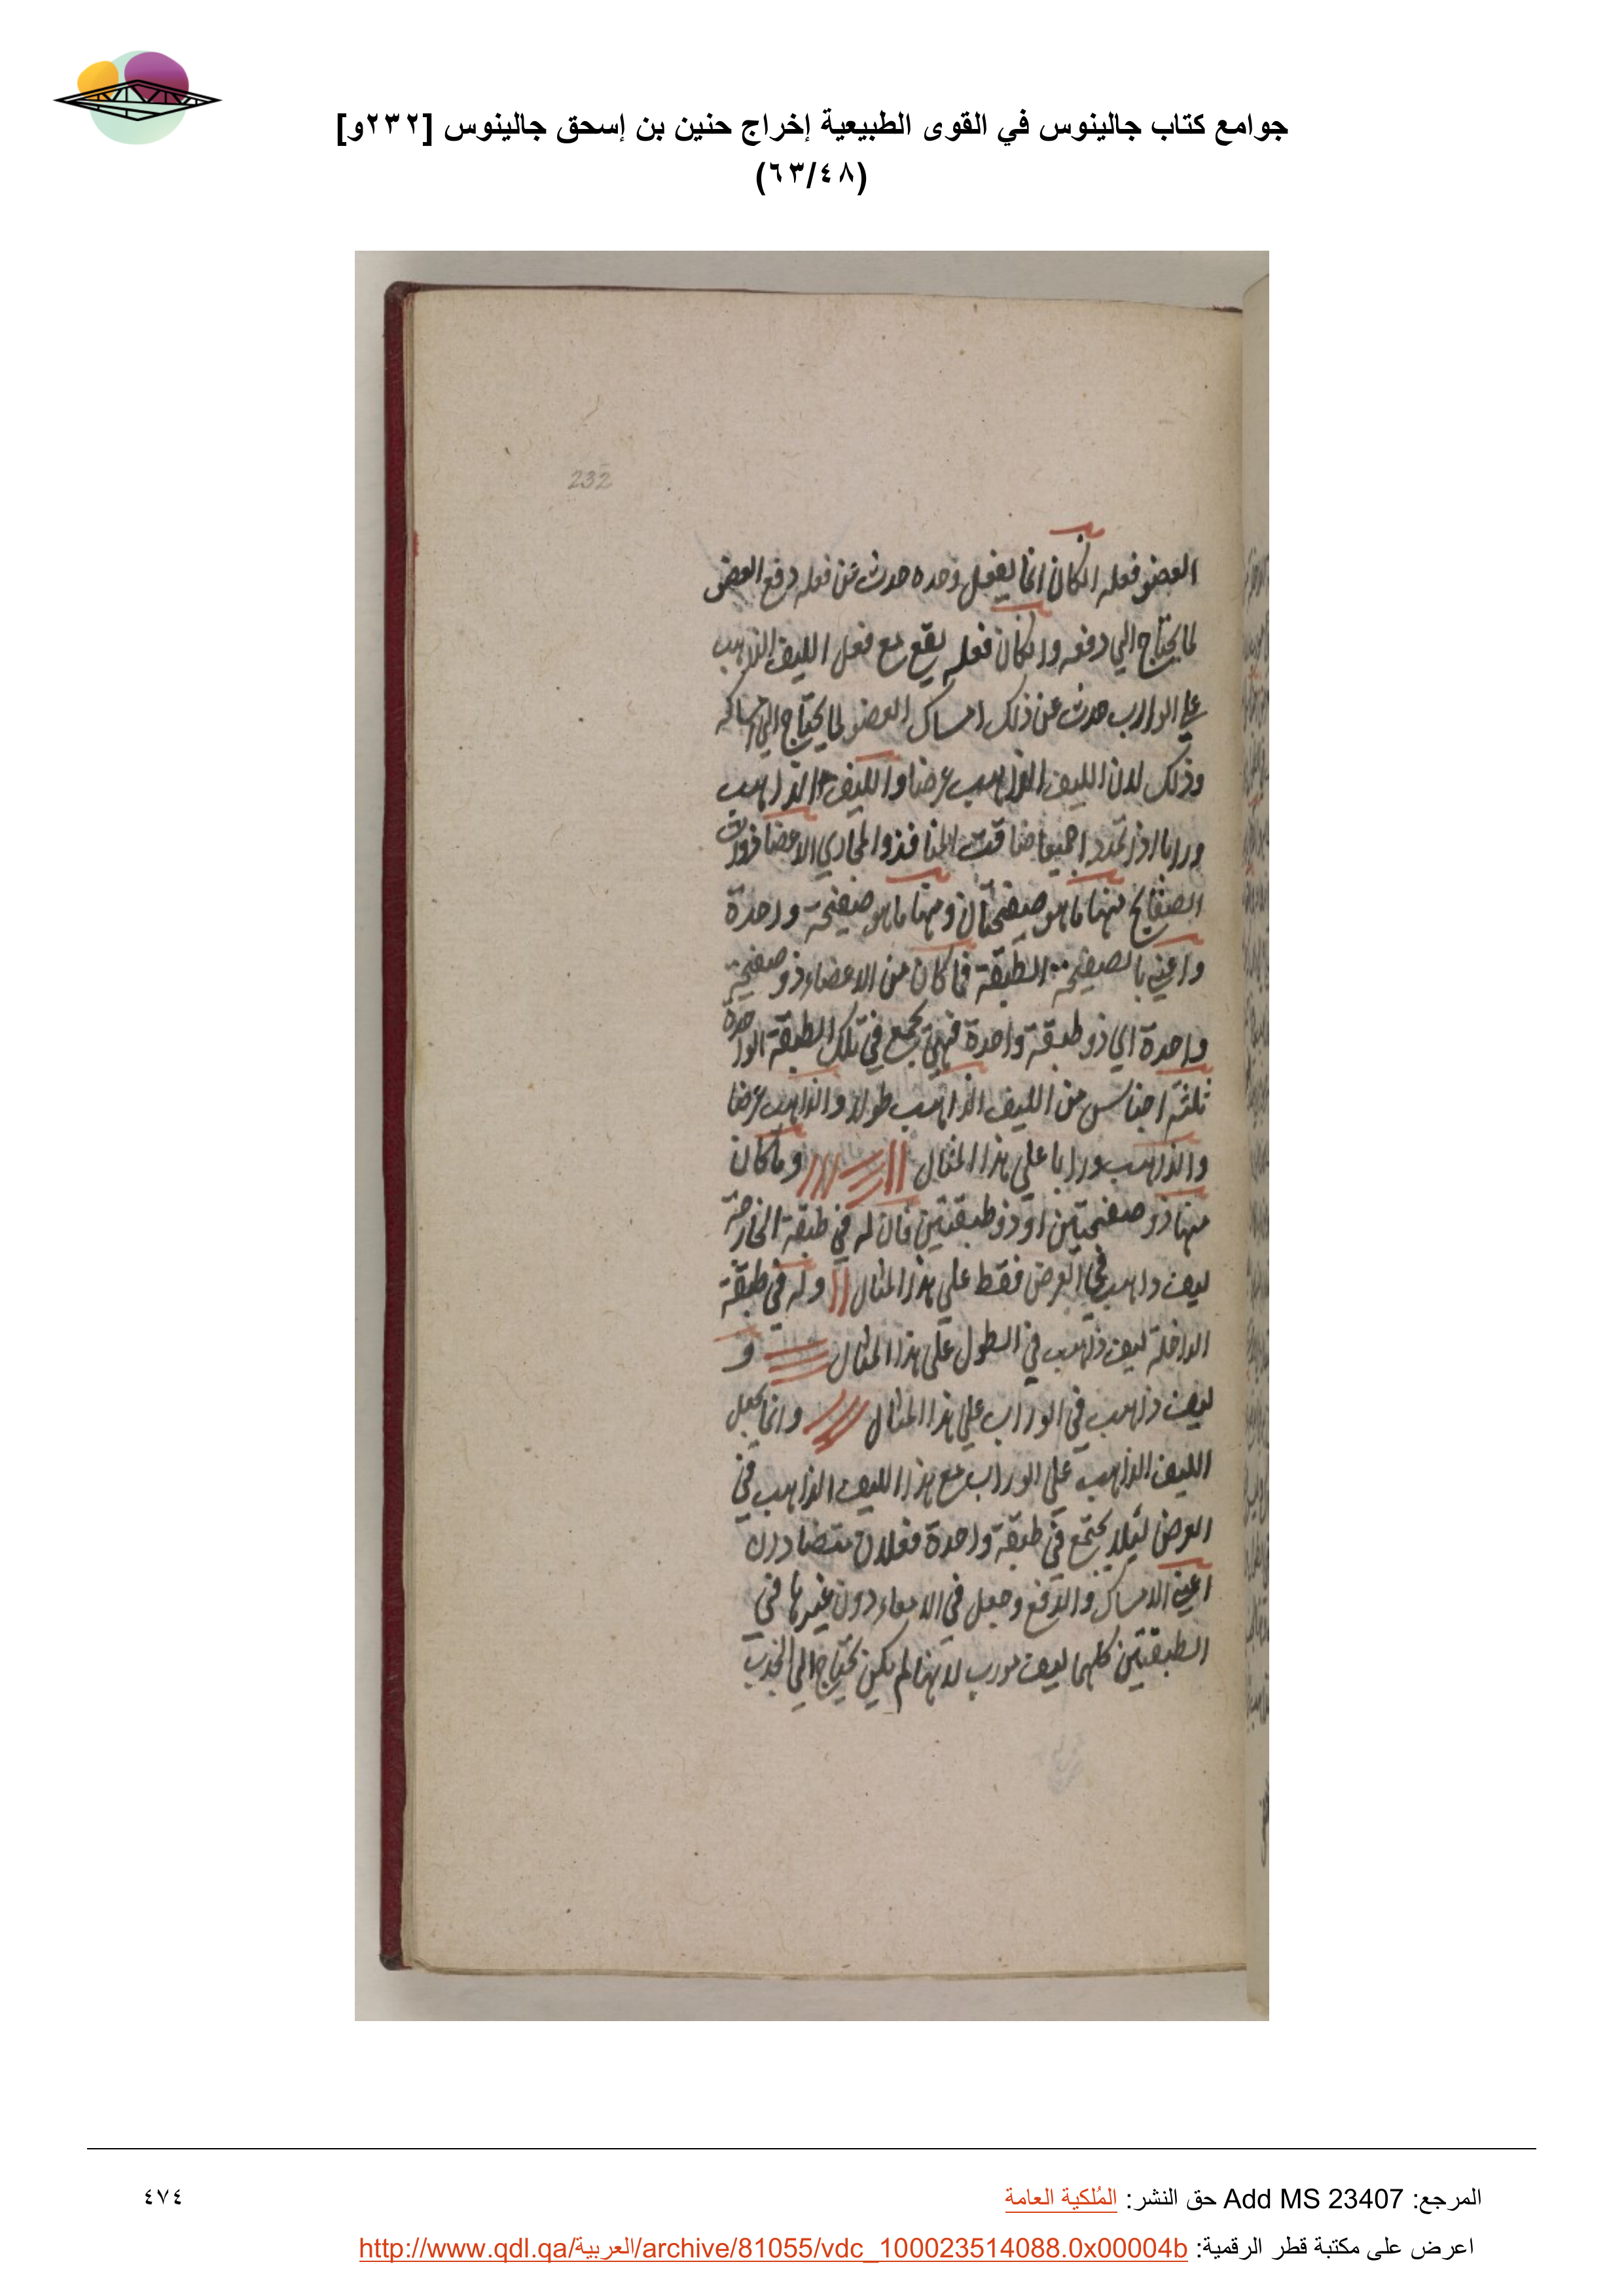 جوامع كتاب جالينوس في القوى الطبيعية إخراج حنين بن إسحق جالينوس [٢٣٢و]
(٦٣/٤٨)
232
العضو فعله انكان انما يفعل وحده حدث عن فعله دفع العضو
لما يحتاج الي دفعه وانكان فعله يقع مع فعل الليف الذاهب
علي الوارب حدث عن ذلك امساك العضو لما يحتاج الي امساكه
وذلك لان الليف الذاهب عرضا والليف الذاهب
ورابا اذا تمدد اجميعا ضاقت المنافذ والمجاري الاعضا ذوات
الصفايح منها ما هو صفيحتان ومنها ما هو صفيحة واحدة
واعني بالصفيحة الطبقة فما كان من الاعضاء ذو صفيحة
واحدة اي ذو طبقة واحدة فهي تجمع في تلك الطبقة الواحدة
ثلثة اجناس من الليف الذاهب طولا والذاهب عرضا
والذاهب ورابا علي هذا المثال وما كان
منها ذو صفيحتين او ذو طبقتين فان له في طبقة الخارجة
ليف ذاهب في العرض فقط علي هذا المثال وله في طبقة
الداخلة ليف ذاهب في الطول علي هذا المثال و
ليف ذاهب في الوراب علي هذا المثال وانما جعل
الليف الذاهب علي الوراب مع هذا الليف الذاهب في
العرض ليلا يجتمع في طبقة واحدة فعلان متضادان
اعني الامساك والدفع وجعل في الامعاء دون غيرها في
الطبقتين كلهما ليف مورب لانها لم يكن تحتاج الي الجذب
المرجع: Add MS 23407 حق النشر: المُلكية العامة
٤٧٤
اعرض على مكتبة قطر الرقمية: http://www.qdl.qa/العربية/archive/81055/vdc_100023514088.0x00004b